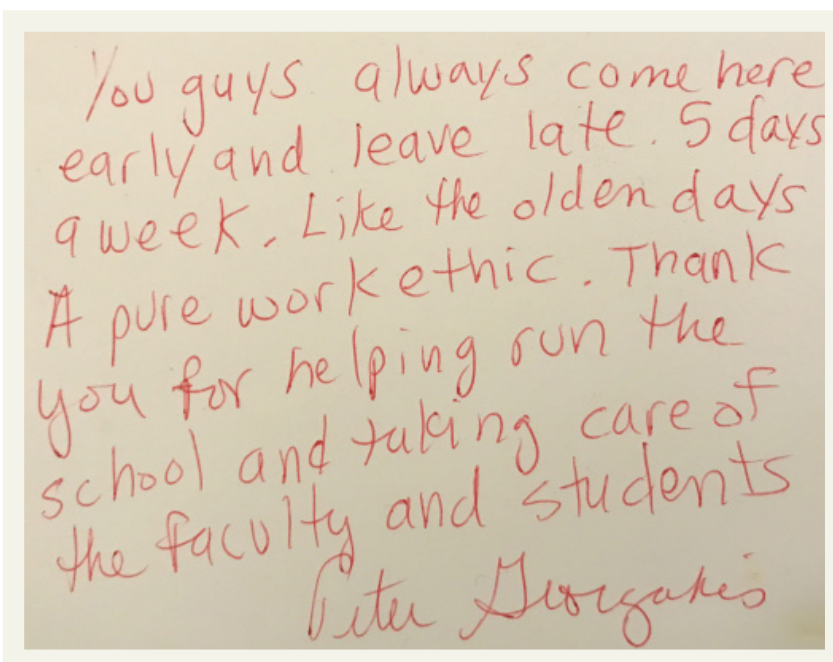 You guys always come here
early and leave late. 5 days
a week. Like the olden days
A pure work ethic. Thank
you for helping run the
school and taking care of
the faculty and students
Peter Georgakis